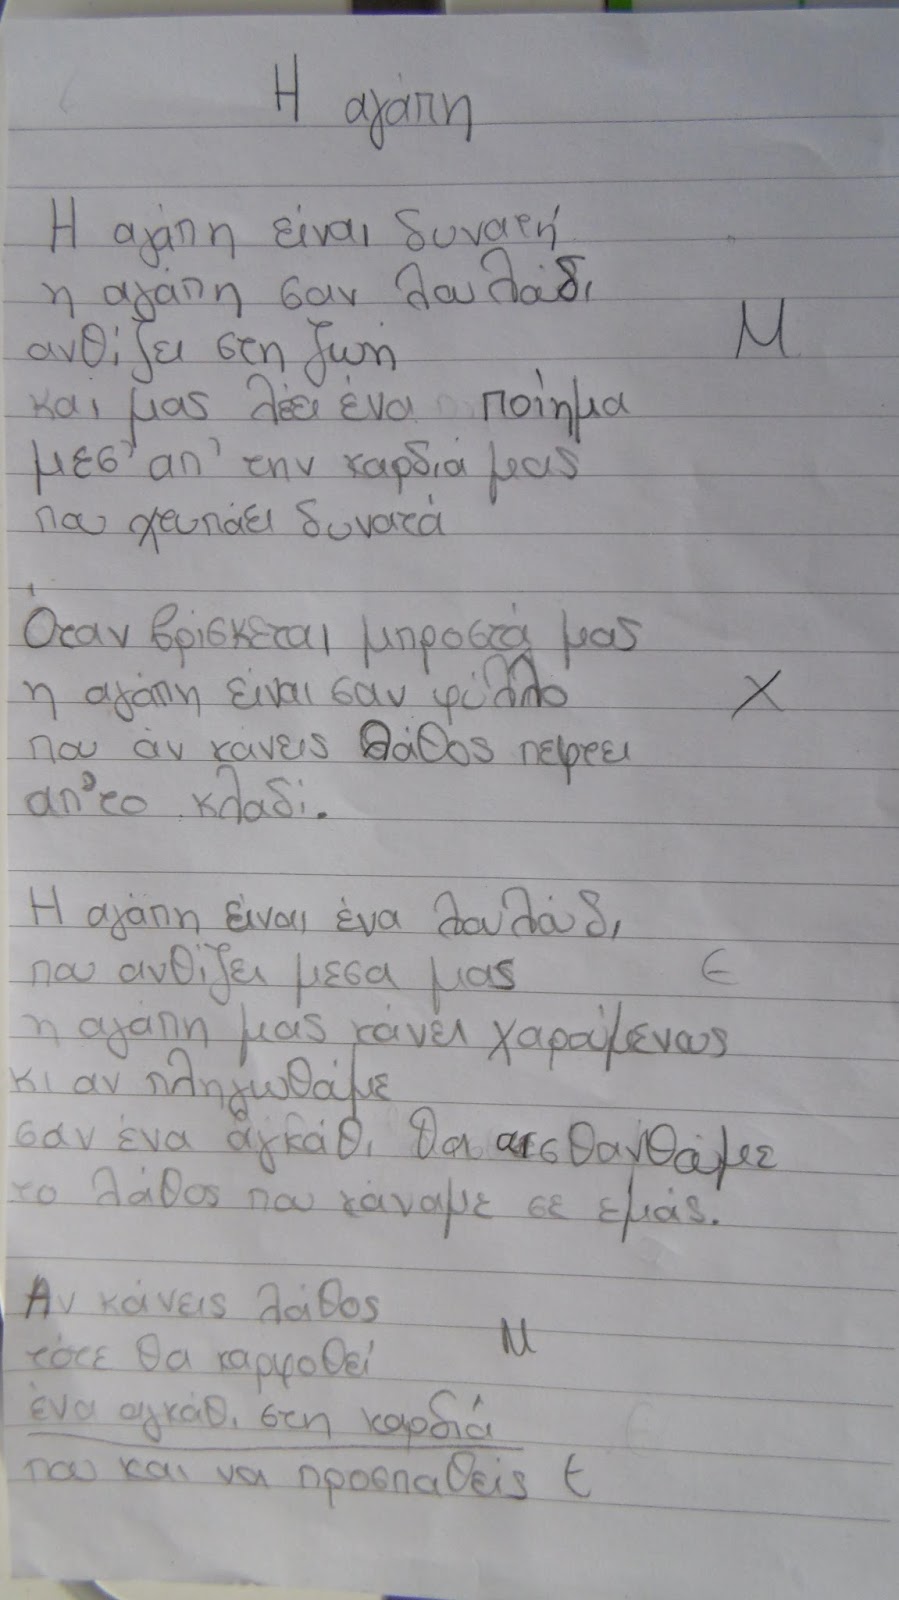 Η αγάπη
Η αγάπη είναι δυνατή
η αγάπη σαν λουλούδι
ανθίζει στη ζωή
Μ
και μας λέει ένα ποίημα
μεσ' απ' την καρδιά μας
που χτυπάει δυνατά
Όταν βρίσκεται μπροστά μας
η αγάπη είναι σαν φύλλο
Χ
που άν κάνεις λάθος πέφτει
απ' το κλαδί.
Η αγάπη είναι ένα λουλούδι
που ανθίζει μεσα μας
Ε
η αγάπη μας κάνει χαρούμενους
κι αν πληγωθούμε
σαν ένα αγκάθι θα αισθανθούμε
το λάθος που κάναμε σε εμάς.
Αν κάνεις λάθος
Μ
τότε θα καρφωθεί
ένα αγκάθι στη καρδιά
που και να προσπαθείς Ε